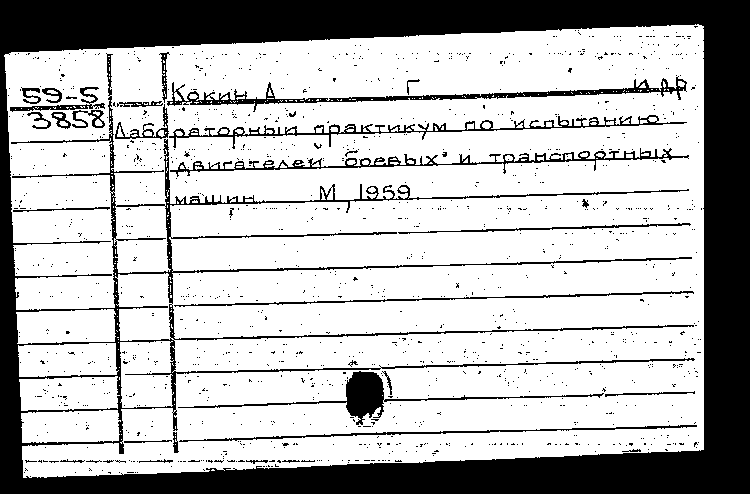 59-5 Кокин, Д Г и др
3858 Лабораторный практикум по испытанию
двигателей боевых и транспортных
машин М, 1959